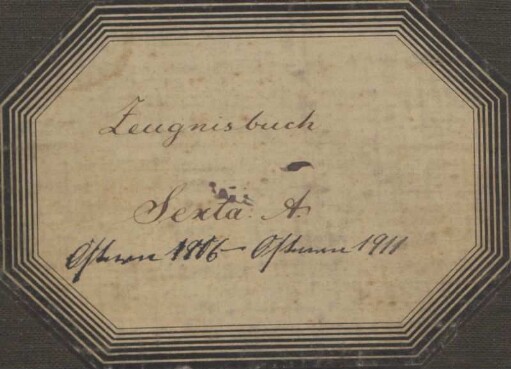 Zeugnisbuch
Sexta A.
Ostern 1906 – Ostern 1911